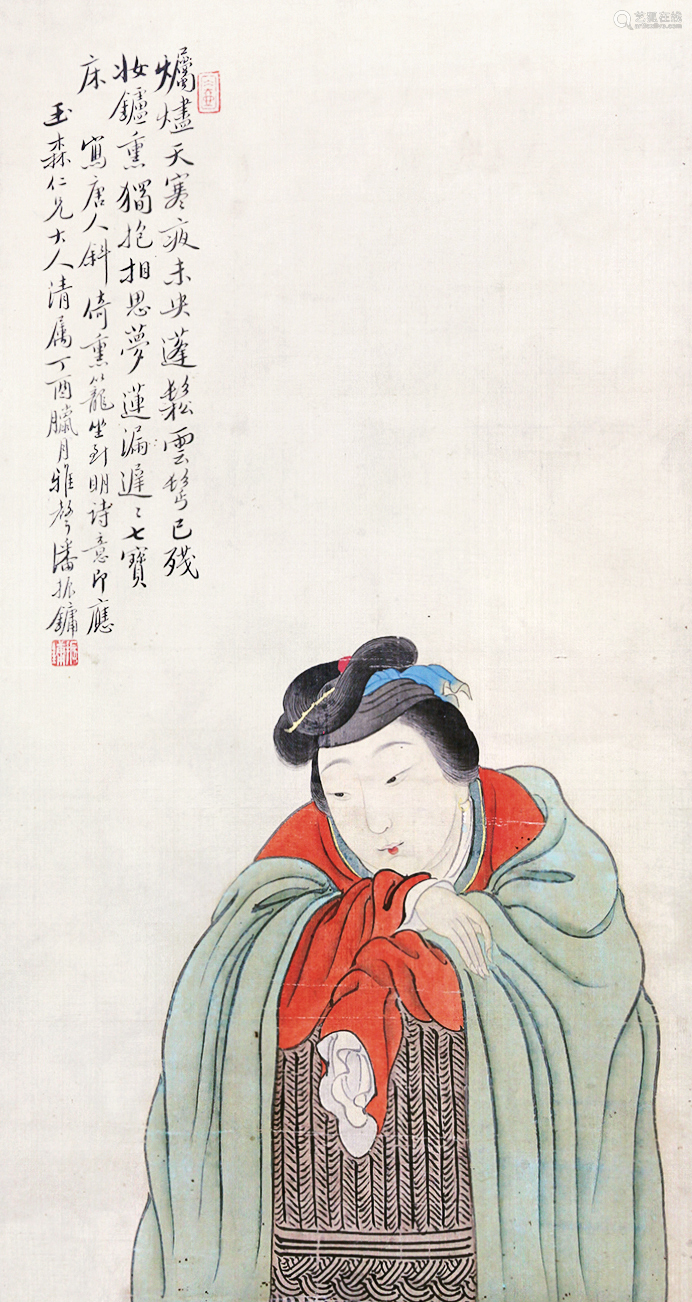 爥燼天寒夜未央蓬鬆雲髻已殘
妝鑪熏獨抱相思夢蓮漏遲〻七寶
床 寫唐人斜倚熏籠坐到明詩意即應
玉森仁兄大人清属丁酉臘月雅聲潘振鏞
艺狐在线
artfoxlive.com